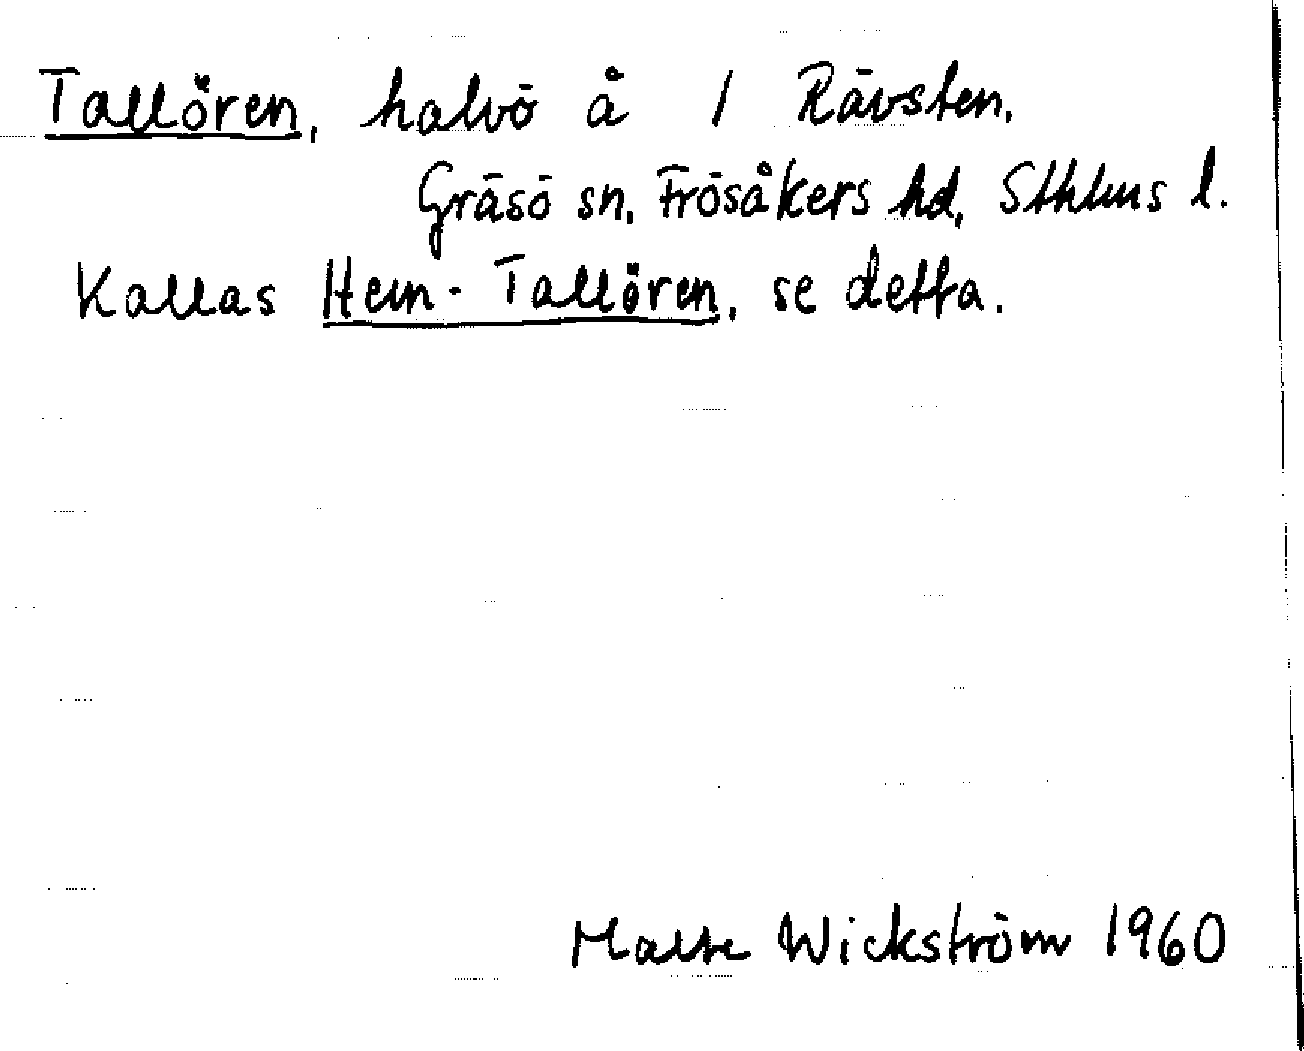 Tallören, halvö å 1 Rävsten.
Gräsö sn, Frösåkers hd, Sthlms l.
Kallas Hem-Tallören, se detta.
Malte Wickström 1960